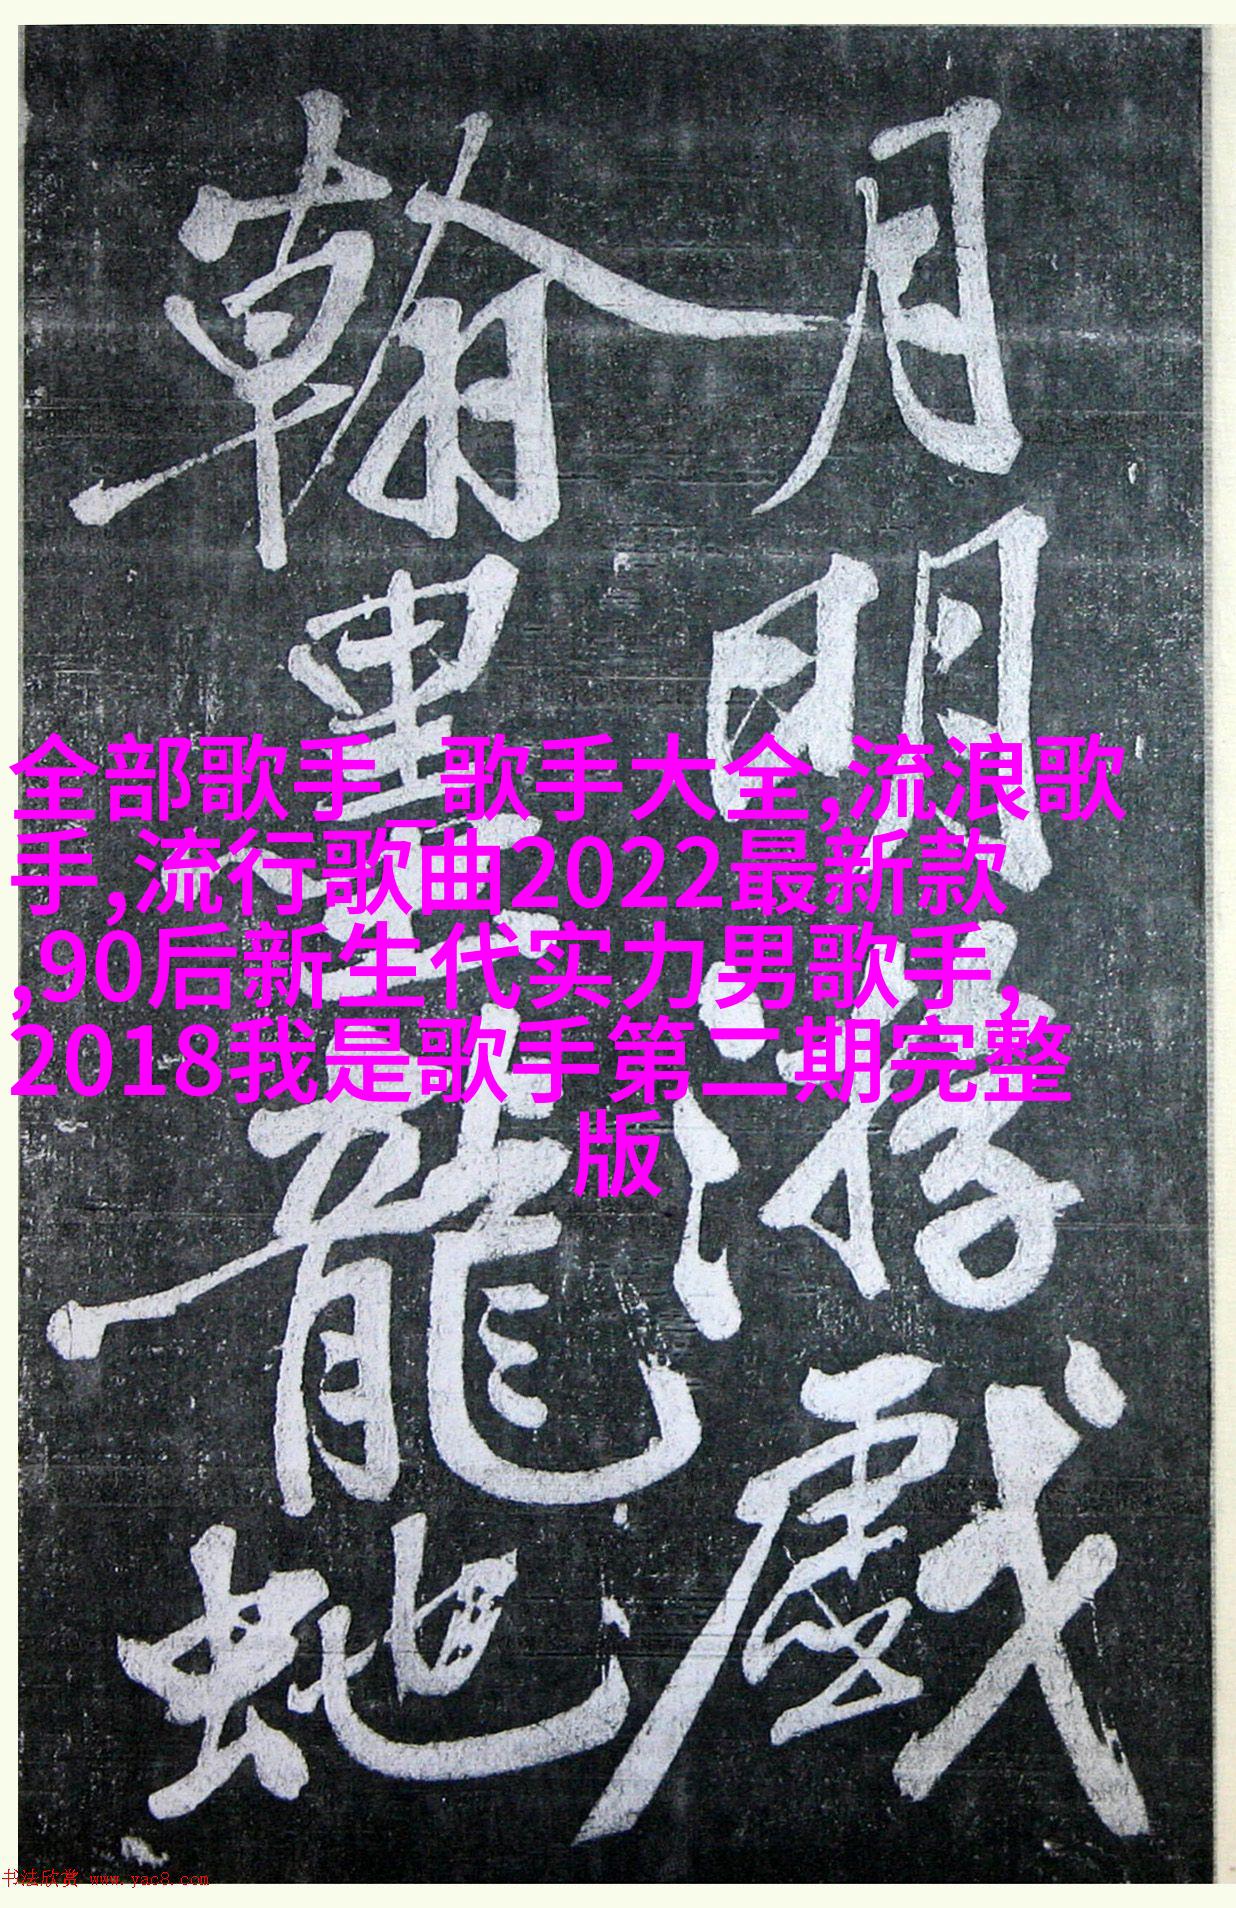 月明游戲
翰墨龍蛇
全部歌手_歌手大全,流浪歌
手,流行歌曲2022最新款
,90后新生代实力男歌手,
2018我是歌手第二期完整
版
书法欣赏 www.yac8.com